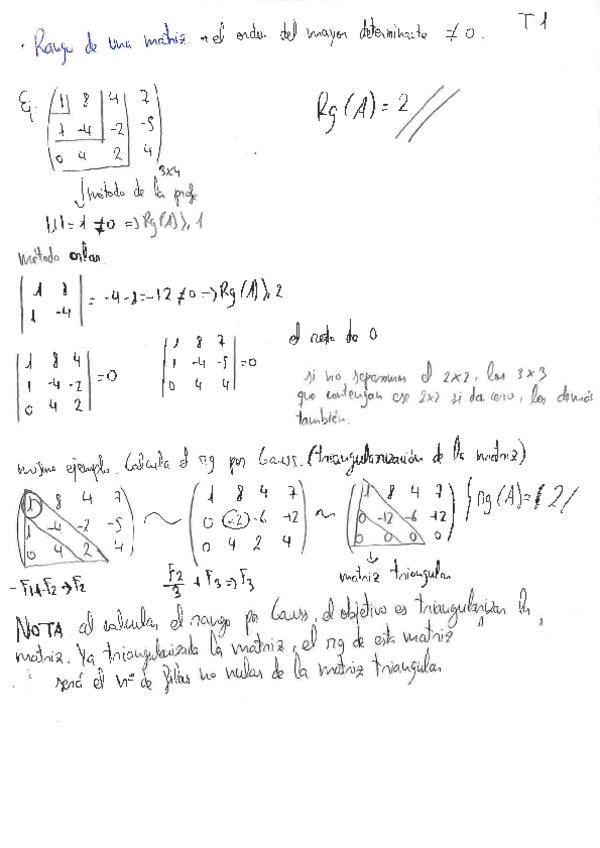 T1
· Rango de una matriz → el orden del mayor determinante ≠ 0.
Ej. ( 1 8 4 7
1 -4 -2 -5
0 4 2 4 ) 3x4
Rg(A) = 2 //
↓ método de la profe
|1| = 1 ≠ 0 => Rg(A) ≥ 1
método orlar
| 1 8
1 -4 | = -4-8 = -12 ≠ 0 -> Rg(A) ≥ 2
| 1 8 4
1 -4 -2
0 4 2 | = 0
| 1 8 7
1 -4 -5
0 4 4 | = 0
el resto da 0
si no separamos el 2x2, los 3x3
que contengan ese 2x2 si da cero, los demás
también.
mismo ejemplo. Calcula el rg por Gauss. (triangularización de la matriz)
( 1 8 4 7
1 -4 -2 -5
0 4 2 4 ) ~ ( 1 8 4 7
0 -12 -6 -12
0 4 2 4 ) ~ ( 1 8 4 7
0 -12 -6 -12
0 0 0 0 ) rg(A) = 2 /
-F1+F2 -> F2
F2/3 + F3 => F3
↓
matriz triangular
NOTA al calcular el rango por Gauss, el objetivo es triangularizar la
matriz. Ya triangularizada la matriz, el rg de esta matriz
será el nº de filas no nulas de la matriz triangular